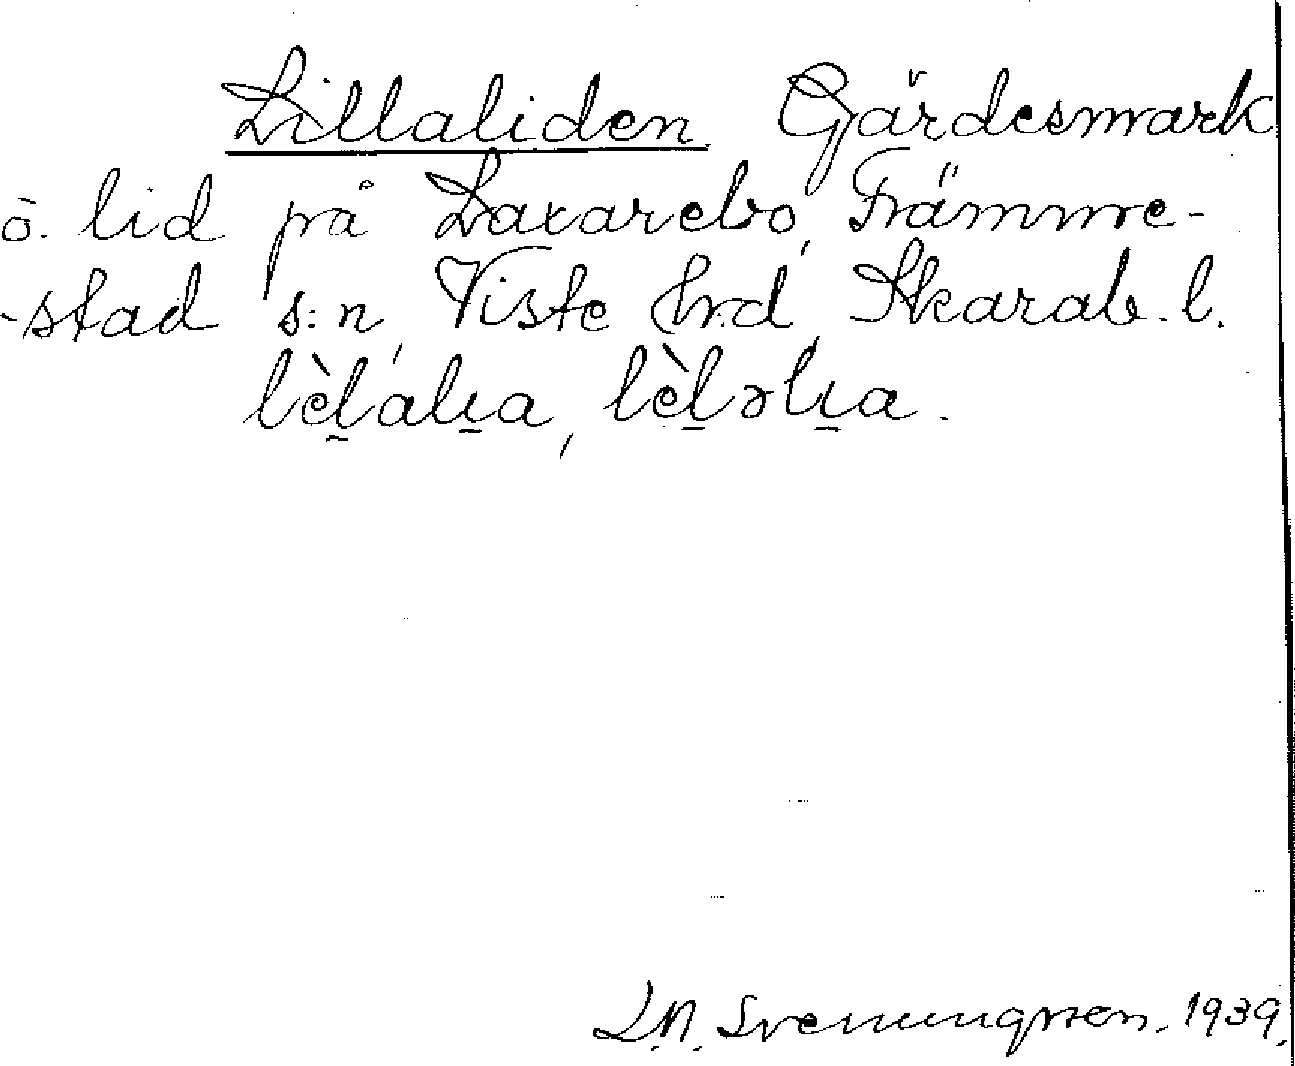 Lillaliden Gärdesmark
o. lid på Laxarebo, Främme-
-stad s:n, Viste hrd, Skarab. l.
lèl̠álı̠a, lèl̠əlı̠a.
L.N. Svenungsson. 1939.